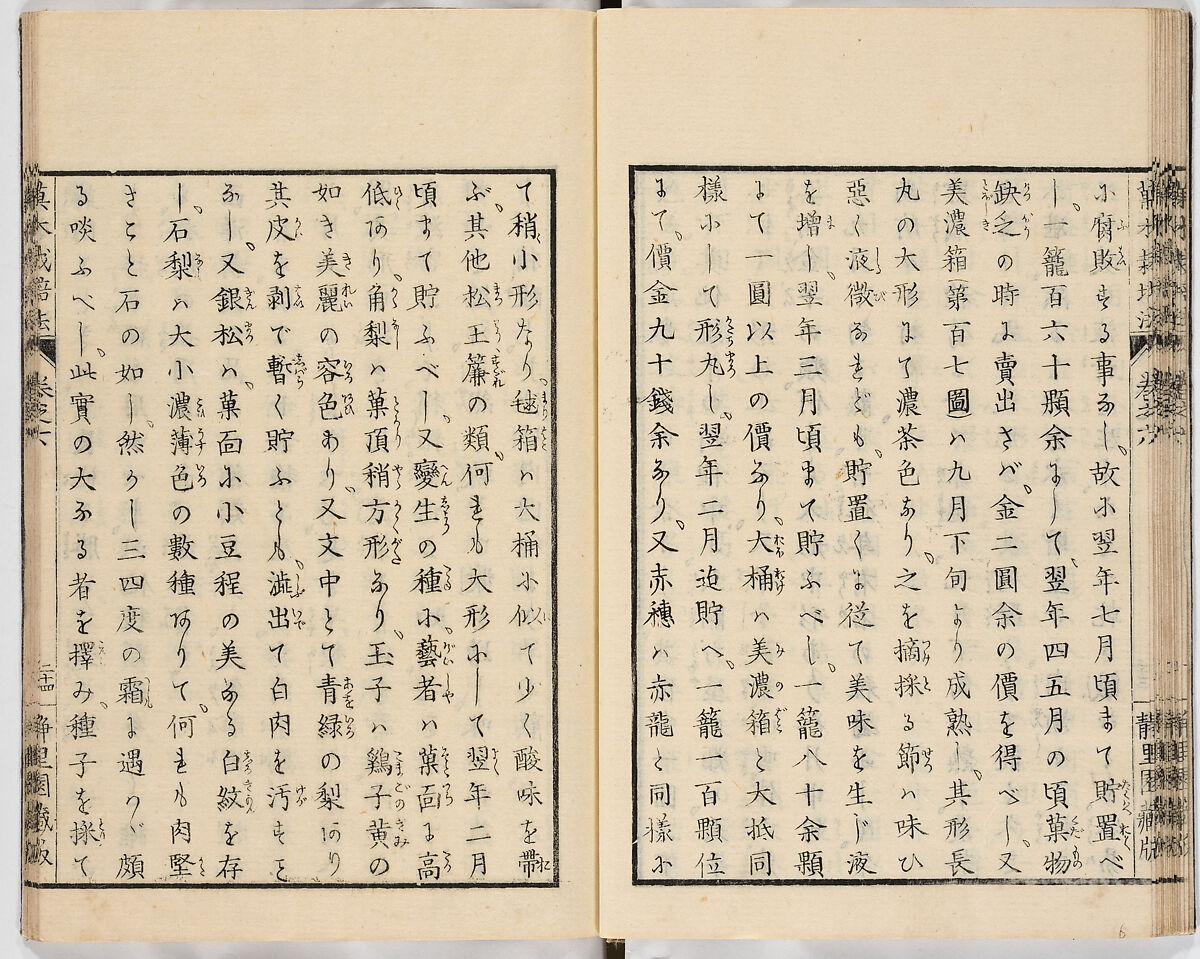 菓木栽培法 卷之六 静里園藏版
に腐敗する事なし、故に翌年七月頃まて貯置べ
し、一籠百六十顆余にして、翌年四五月の頃菓物
缺乏の時に賣出さバ、金二圓余の價を得べし、又
美濃箱第百七圖ハ九月下旬より成熟し、其形長
丸の大形にて濃茶色なり、之を摘採る節ハ味ひ
惡く液微なれども、貯置くに従て美味を生じ液
を增し、翌年三月頃まて貯ふべし、一籠八十余顆
にて一圓以上の價なり、大桶ハ美濃箱と大抵同
樣にして形丸し、翌年二月迠貯へ、一籠一百顆位
にて、價金九十錢余なり、又赤穗ハ赤龍と同樣に
て稍小形なり、毬箱ハ大桶に似て少く酸味を帶
ぶ、其他松王簾の類、何れも大形にして翌年二月
頃まて貯ふべし、又變生の種に、藝者ハ菓面に高
低あり、角梨ハ菓頂稍方形なり、玉子ハ鷄子黄の
如き美麗の容色あり、又文中とて青緑の梨あり
其皮を剥で暫く貯ふとも、澁出て白肉を汚すこと
なし、又銀松ハ、菓面に小豆程の美なる白紋を存
し、石梨ハ大小濃薄色の數種ありて、何れも肉堅
きこと石の如し、然かし三四度の霜に遇ハゞ頗
る啖ふべし、此實の大なる者を擇み、種子を採て
菓木栽培法 卷之六 二十四 静里園藏版